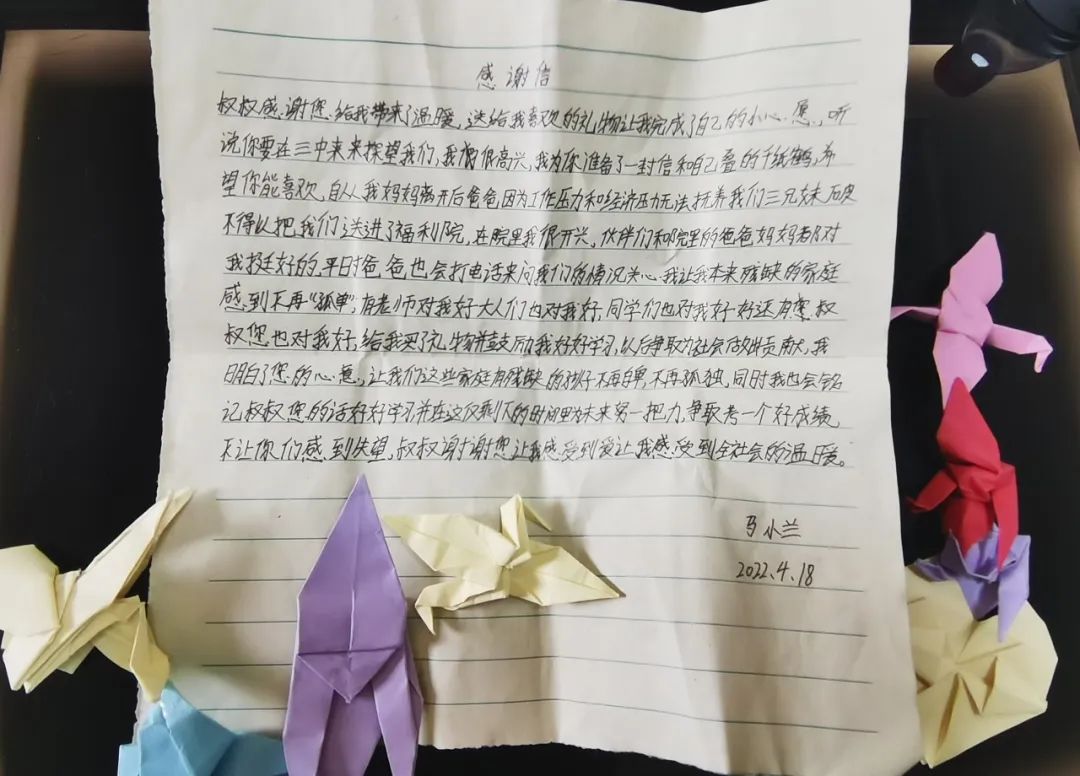 感谢信
叔叔感谢您给我带来了温暖,送给我喜欢的礼物让我完成了自己的小心愿,听
说你要在三中来来探望我们,我很高兴,我为你准备了一封信和自己叠的千纸鹤,希
望你能喜欢,自从我妈妈离开后爸爸因为工作压力和经济压力无法抚养我们三兄妹
不得以把我们送进了福利院,在院里我很开兴,伙伴们和院里的爸爸妈妈都对
我挺好的,平时爸爸也会打电话来问我们的情况关心我让我本来残缺的家庭
感到不再“孤单”,有老师对我好大人们也对我好,同学们也对我好好还有您叔
叔您也对我好,给我买了礼物并鼓励我好好学习,以后争取为社会做出贡献,我
明白了您的心意,让我们这些家庭有残缺的孩子不再自卑,不再孤独,同时我也会铭
记叔叔您的话好好学习并在这仅剩下的时间里为未来努一把力,争取考一个好成绩,
不让你们感到失望,叔叔谢谢您让我感受到爱让我感受到全社会的温暖。
马小兰
2022.4.18